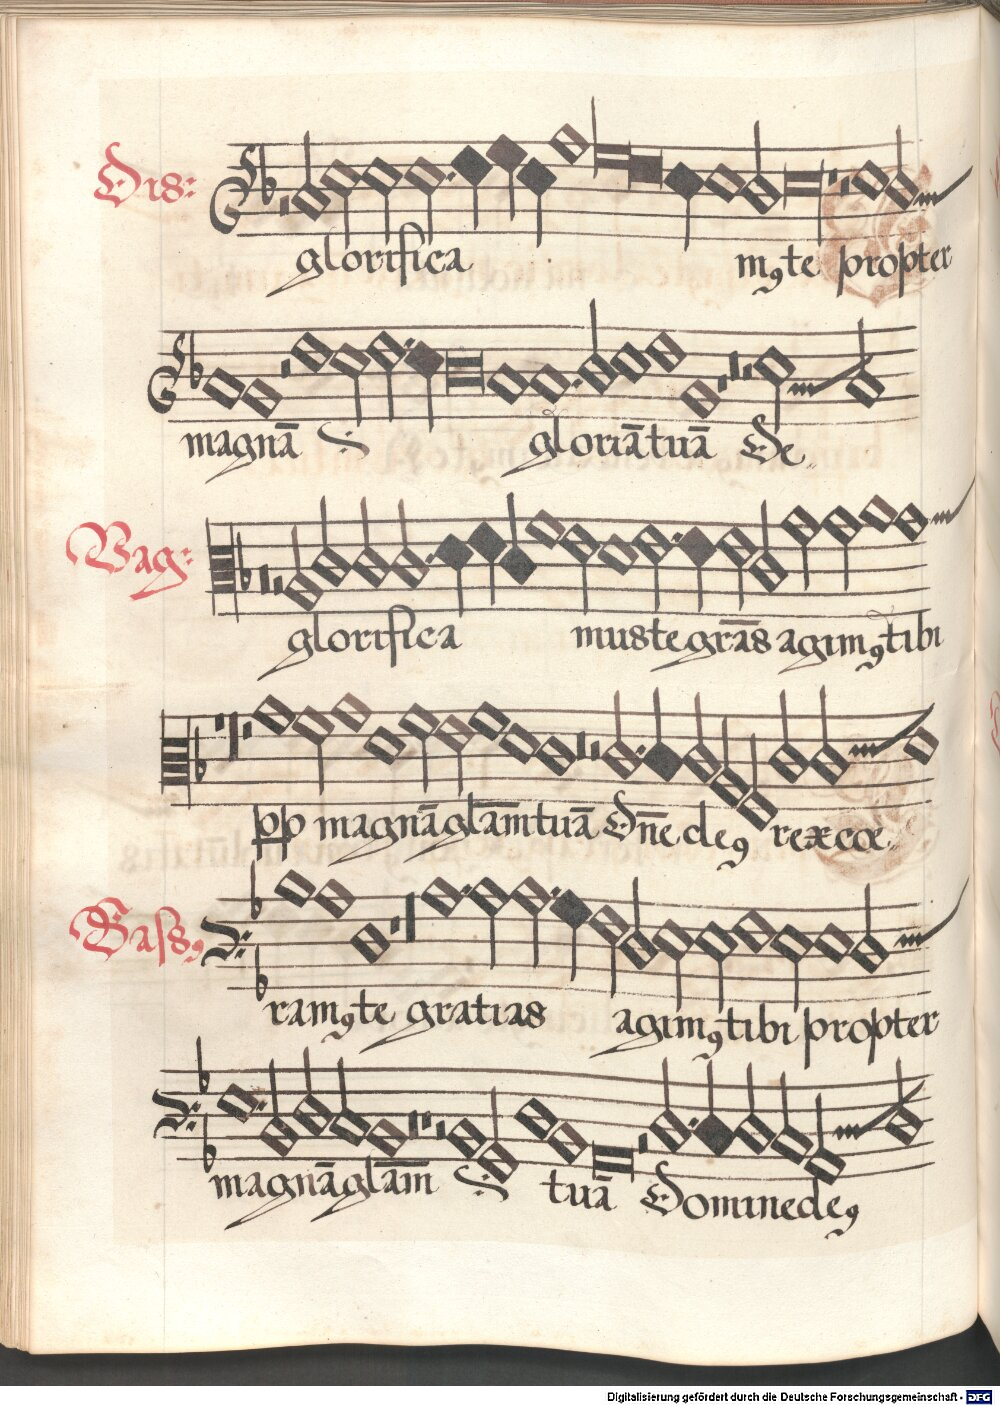 Dis:
glorifica mꝯte propter
magnā :S: gloriā tuā De
Vag:
glorifica muste grās agimꝯ tibi
pp magnā glām tuā Dn̄e deꝯ rex cœ
Bassꝯ
ramꝯ te gratias agimꝯ tibi propter
magnā glām :S: tuā Domine deꝯ
Digitalisierung gefördert durch die Deutsche Forschungsgemeinschaft - DFG